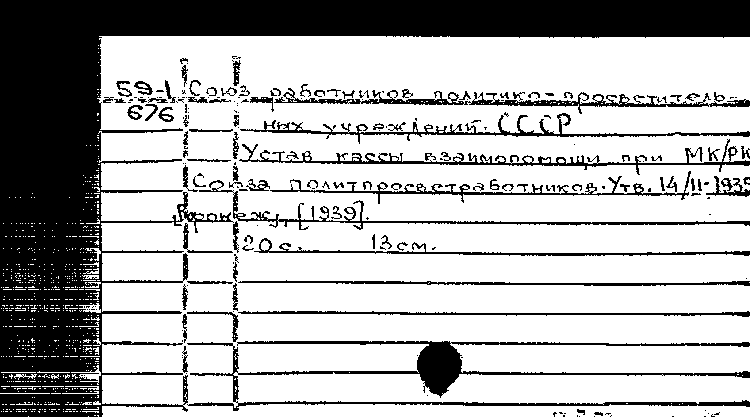 59-1 Союз работников политико-просветитель-
676 ных учреждений. СССР
Устав кассы взаимопомощи при МК/РК
Союза политпросветработников. Утв. 14/II-1939
[Воронеж], [1939].
20 с. 13 см.